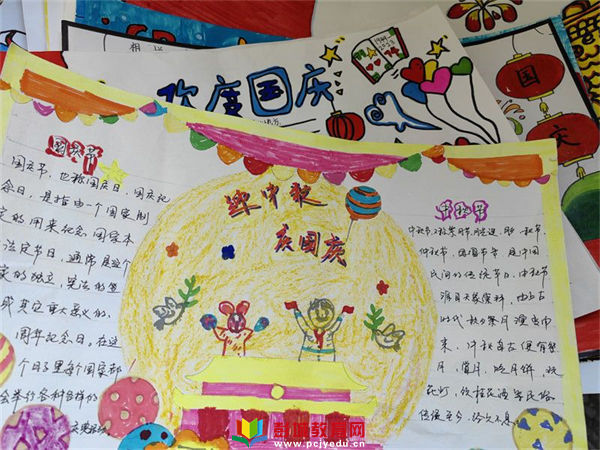 欢度国庆
1949
国
庆
国庆节
国庆节,也称国庆日、国庆纪
念日,是指由一个国家制
定的用来纪念国家本
法定节日,通常是这个
家的独立、宪法的签
或其它重大意义的
周年纪念日。在这
个日子里每个国家都
会举行各种各样的
庆祝活动
迎中秋
庆国庆
中秋节
中秋节又称祭月节、
仲秋节、团圆节等,是中国
民间的传统节日,中秋节
源自天象崇拜,由上古
时代秋夕祭月演变而
来,中秋自古便有祭
月、赏月、吃月饼、玩
花灯、饮桂花酒等民俗
流传至今,经久不息。
蒲城教育网
www.pcjyedu.cn